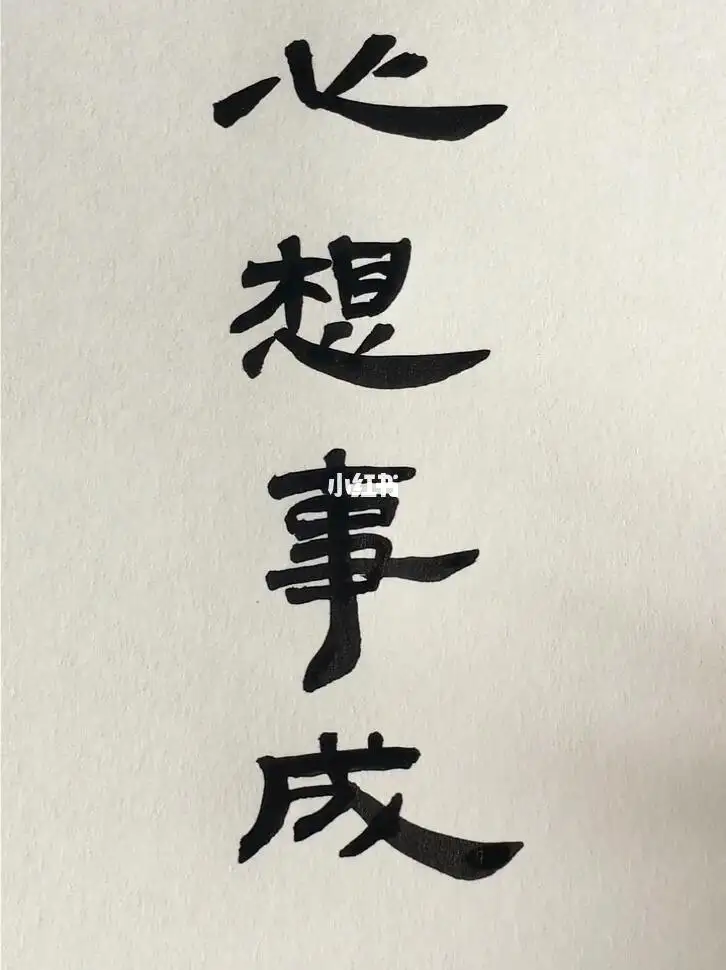 心想事成
小红书